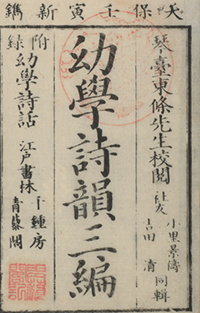 天保壬寅新鐫
琴臺東條先生校閲
社友
小里景儔
吉田 清
同輯
幼學詩韻三編
附録
幼學詩話
江戸書林
千鍾房
青藜閣